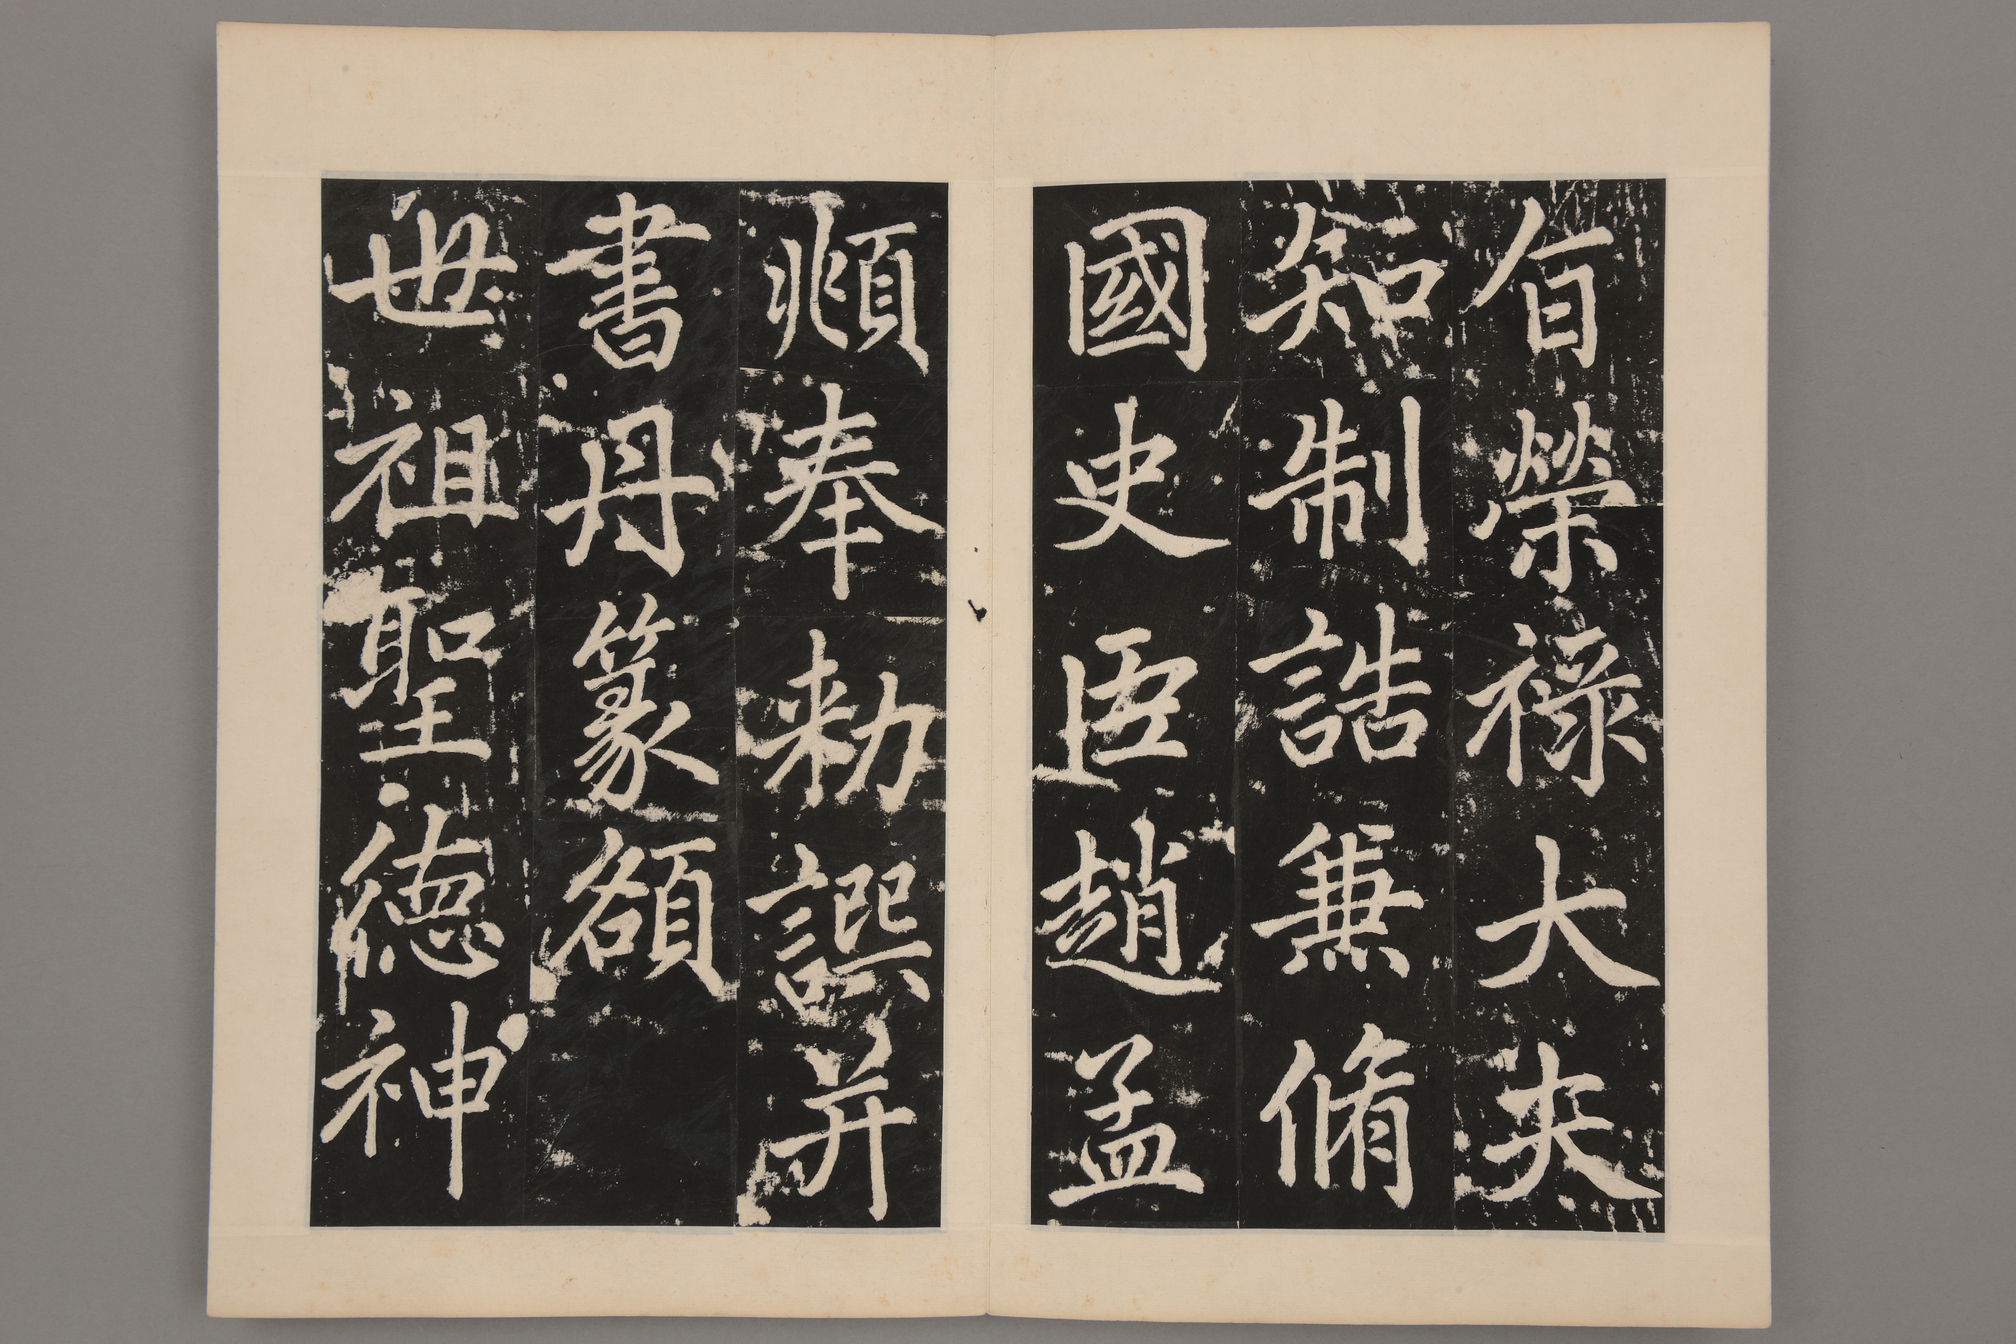 旨榮祿大夫
知制誥兼脩
國史臣趙孟
頫奉勑譔并
書丹篆額
世祖聖德神